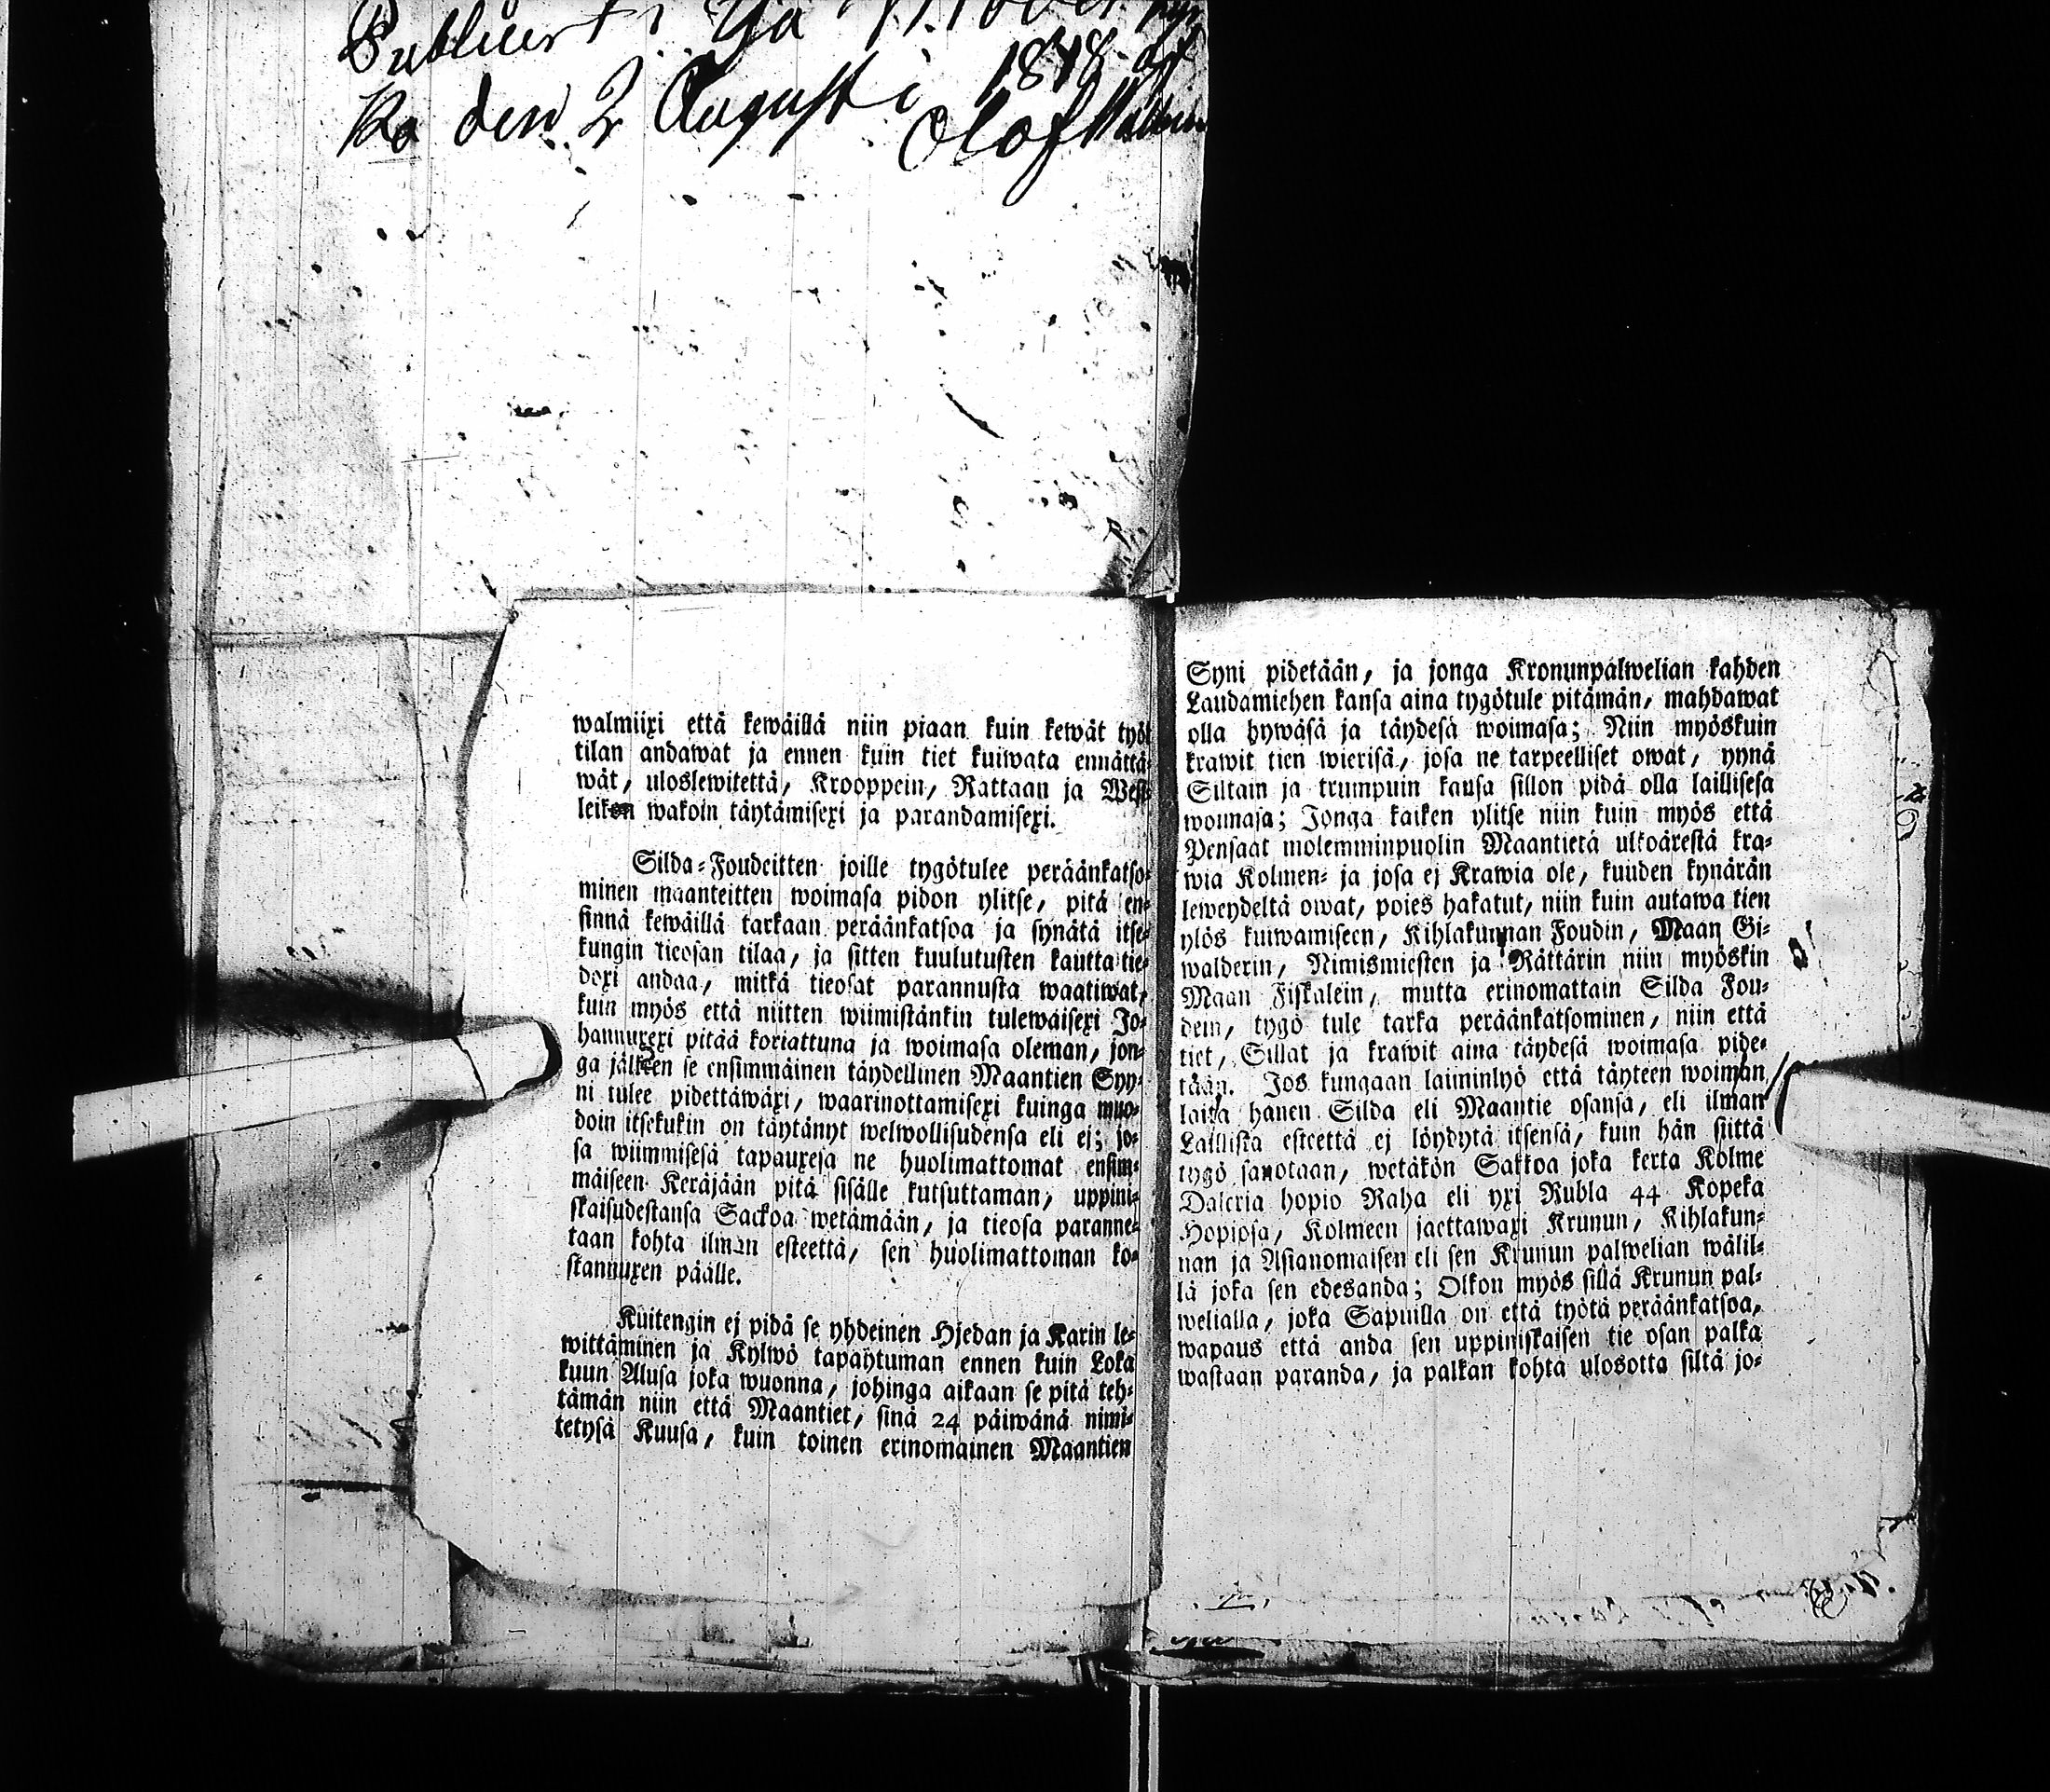 den 2 Augusti 1848 af
Olof
walmiixi että kewäillä niin piaan kuin kewät työt
tilan andawat ja ennen kuin tiet kuiwata ennättä-
wät, uloslewitettä, Krooppein, Rattaan ja West-
leikon wakoin täytämisexi ja parandamisexi.
Silda-Foudeitten joille tygötulee peräänkatso-
minen maanteitten woimasa pidon ylitse, pitä en-
sinnä kewäillä tarkaan peräänkatsoa ja synätä itse-
kungin tieosan tilaa, ja sitten kuulutusten kautta tie-
doxi andaa, mitkä tieosat parannusta waatiwat,
kuin myös että niitten wiimistänkin tulewaisexi Jo-
hannuxexi pitää koriattuna ja woimasa oleman, jon-
ga jälkeen se ensimmäinen täydellinen Maantien Syy-
ni tulee pidettäwäxi, waarinottamisexi kuinga muo-
doin itsekukin on täytänyt welwollisudensa eli ej; jo-
sa wiimmisesä tapauxesa ne huolimattomat ensim-
mäiseen Keräjään pitä sisälle kutsuttaman, uppini-
skaisudestansa Sackoa wetämään, ja tieosa paranne-
taan kohta ilman esteettä, sen huolimattoman ko-
stannuxen päälle.
Kuitengin ej pidä se yhdeinen Hjedan ja Karin le-
wittäminen ja Kylwö tapahtuman ennen kuin Loka
kuun Alusa joka wuonna, johinga aikaan se pitä teh-
tämän niin että Maantiet, sinä 24 päiwänä nimi-
tetysä Kuusa, kuin toinen erinomainen Maantien
Syni pidetään, ja jonga Kronunpalwelian kahden
Laudamiehen kansa aina tygötule pitämän, mahdawat
olla hywäsä ja täydesä woimasa; Niin myöskuin
krawit tien wierisä, josa ne tarpeelliset owat, ynnä
Siltain ja trumpuin kansa sillon pidä olla laillisesa
woimasa; Jonga kaiken ylitse niin kuin myös että
Pensaat molemminpuolin Maantietä ulkoärestä kra-
wia Kolmen- ja josa ej Krawia ole, kuuden kynärän
leweydeltä owat, poies hakatut, niin kuin autawa tien
ylös kuiwamiseen, Kihlakunnan Foudin, Maan Gi-
walderin, Nimismiesten ja Rättärin niin myöskin
Maan Fiskalein, mutta erinomattain Silda Fou-
dein, tygö tule tarka peräänkatsominen, niin että
tiet, Sillat ja krawit aina täydesä woimasa pide-
tään. Jos kungaan laiminlyö että täyteen woiman
laitta hänen Silda eli Maantie osansa, eli ilman
Laillista esteettä ej löydytä itsensä, kuin hän siittä
tygö sanotaan, wetäkön Sakkoa joka kerta Kolme
Daleria hopio Raha eli yxi Rubla 44 Kopeka
Hopiosa, Kolmeen jaettawaxi Krunun, Kihlakun-
nan ja Asianomaisen eli sen Krunun palwelian wälil-
lä joka sen edesanda; Olkon myös sillä Krunun pal-
welialla, joka Sapuilla on että työtä peräänkatsoa,
wapaus että anda sen uppiniskaisen tie osan palka
wastaan paranda, ja palkan kohta ulosotta siltä jo-